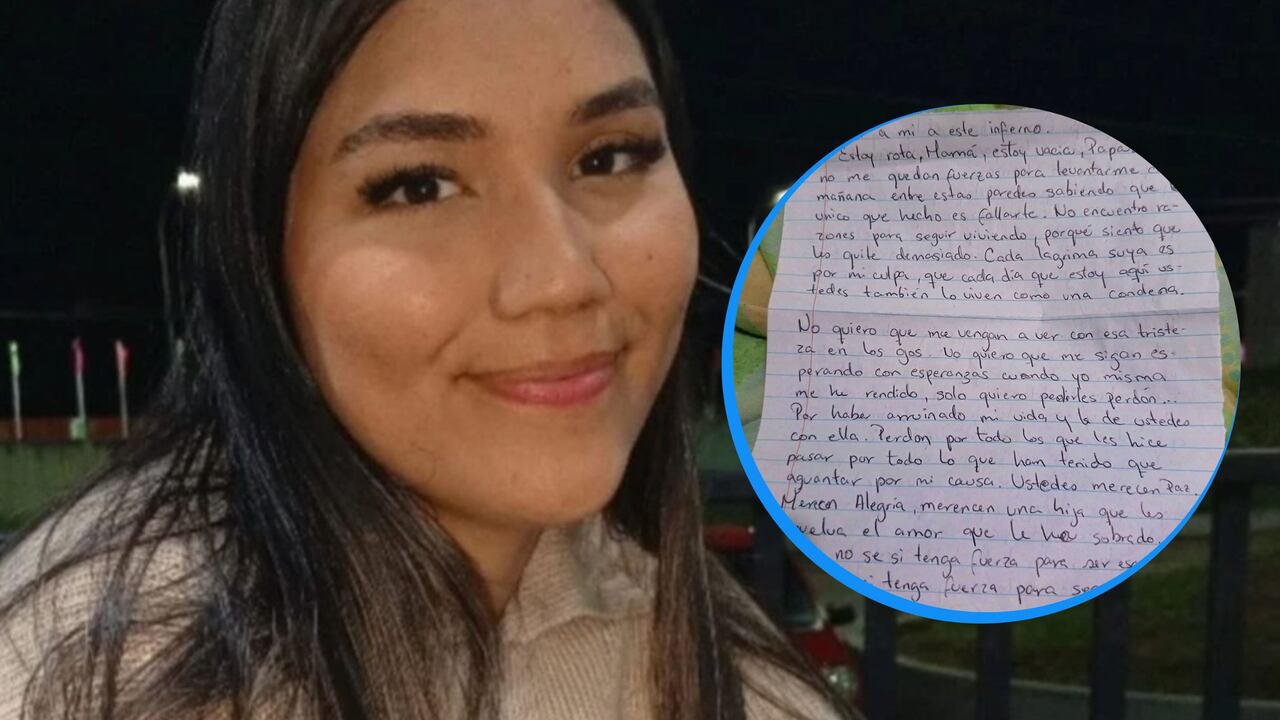 a mi a este infierno.
Estoy rota, Mamá, estoy vacia, Papa
no me quedan fuerzas para levantarme
mañana entre estas paredes sabiendo que
unico que hecho es fallarte. No encuentro ra-
zones para seguir viviendo, porqué siento que
les quite demasiado. Cada lagrima suya es
por mi culpa, que cada dia que estoy aqui us-
tedes también lo viven como una condena.
No quiero que me vengan a ver con esa triste-
za en los ojos. No quiero que me sigan es-
perando con esperanzas cuando yo misma
me he rendido, solo quiero pedirles perdón...
Por haber arruinado mi vida y la de ustedes
con ella. Perdon por todo los que les hice
pasar por todo lo que han tenido que
aguantar por mi causa. Ustedes merecen Paz.
Merecen Alegria, merecen una hija que les
el amor que le ha sobrado.
no se si tenga fuerza para ser
tenga fuerza para